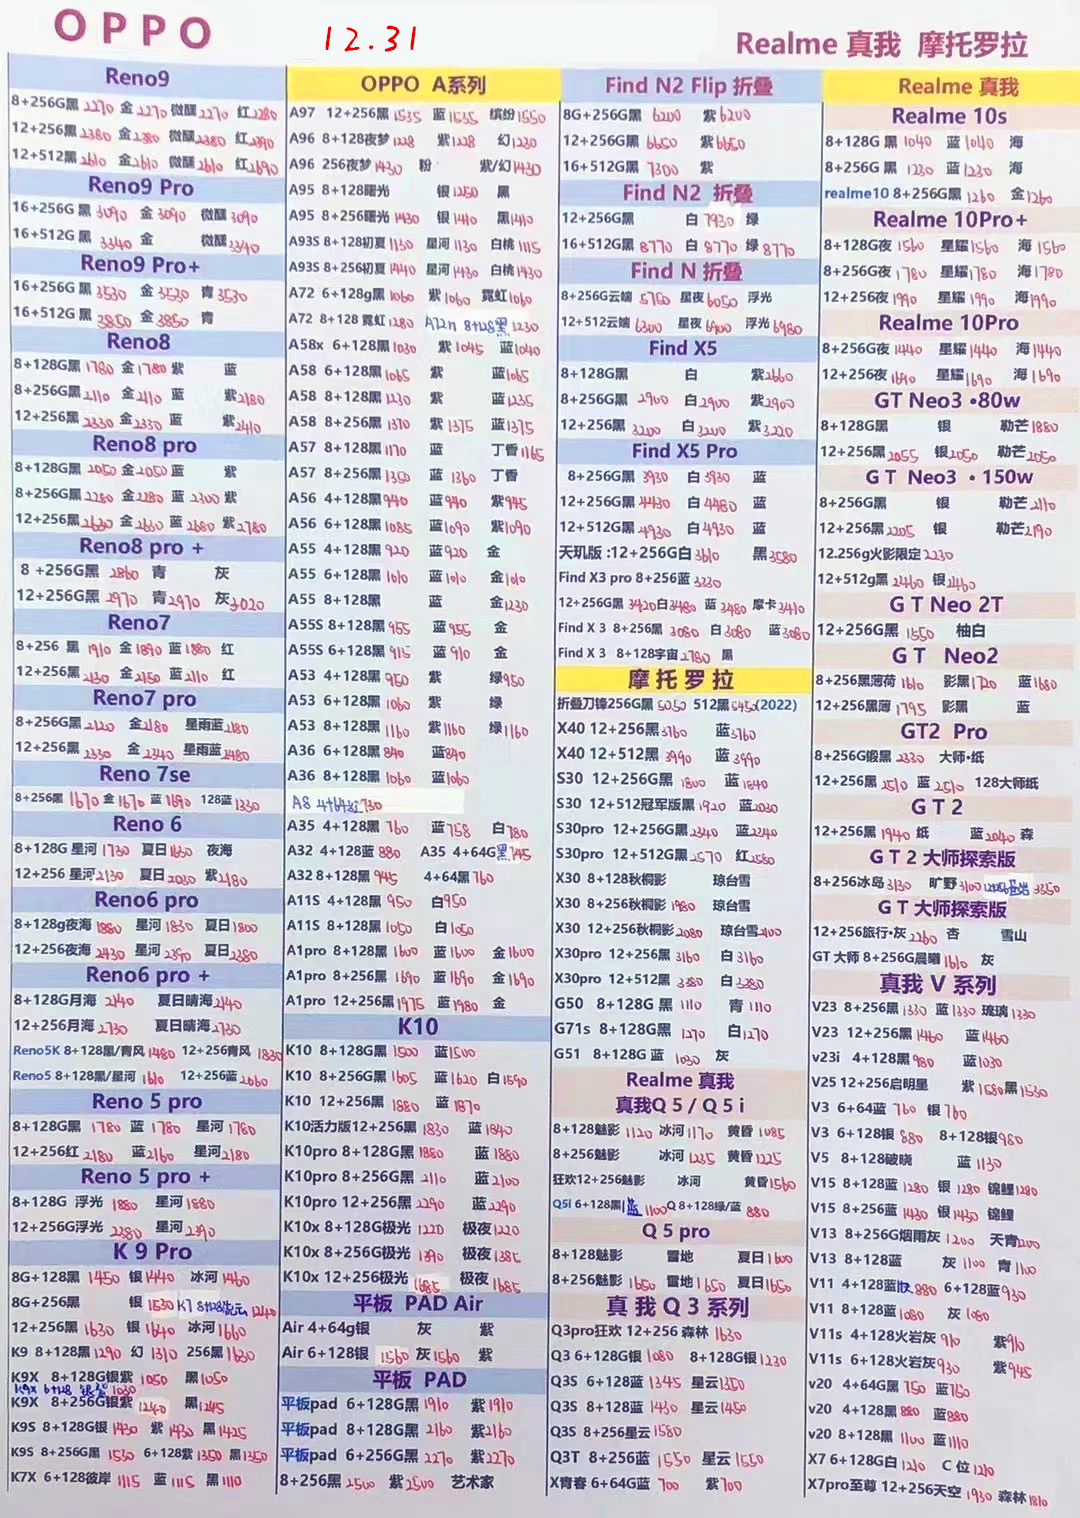 OPPO
12.31
Realme 真我 摩托罗拉
Reno9
8+256G黑 2270 金 2270 微醺 2270 红 2280
12+256黑 2380 金 2380 微醺 2380 红 2390
12+512黑 2610 金 2610 微醺 2610 红 2690
Reno9 Pro
16+256G 黑 3090 金 3090 微醺 3090
16+512G 黑 3340 金 微醺 3340
Reno9 Pro+
16+256G 黑 3530 金 3530 青 3530
16+512G 黑 3850 金 3850 青
Reno8
8+128G黑 1780 金 1780 紫 蓝
8+256G黑 2110 金 2110 蓝 紫 2180
12+256黑 2330 金 2330 蓝 紫 2410
Reno8 pro
8+128G黑 2050 金 2050 蓝 紫
8+256G黑 2280 金 2280 蓝 2300 紫
12+256黑 2630 金 2630 蓝 2680 紫 2780
Reno8 pro +
8 +256G黑 2860 青 灰
12+256G黑 2970 青 2970 灰 3020
Reno7
8+256 黑 1910 金 1890 蓝 1880 红
12+256黑 2130 金 2150 蓝 2110 红
Reno7 pro
8+256G黑 2120 金 2180 星雨蓝 2180
12+256黑 2330 金 2340 星雨蓝 2480
Reno 7se
8+256黑 1670 金 1670 蓝 1690 128蓝 1330
Reno 6
8+128G 星河 1730 夏日 1630 夜海
12+256 星河 2130 夏日 2030 紫 2180
Reno6 pro
8+128g夜海 1880 星河 1830 夏日 1800
12+256夜海 2430 星河 2390 夏日 2380
Reno6 pro +
8+128G月海 2140 夏日晴海 2140
12+256月海 2730 夏日晴海 2730
Reno5K 8+128黑/青风 1480 12+256青风 1830
Reno5 8+128黑/星河 1610 12+256蓝 2060
Reno 5 pro
8+128G黑 1780 蓝 1780 星河 1780
12+256红 2180 蓝 2160 星河 2180
Reno 5 pro +
8+128G 浮光 1880 星河 1880
12+256G浮光 2380 星河 2390
K 9 Pro
8G+128黑 1450 银 1440 冰河 1460
8G+256黑 银 1530 K7 8+128流云 1240
12+256黑 1630 银 1640 冰河 1660
K9 8+128黑 1290 幻 1310 256黑 1630
K9X 8+128G银紫 1050 黑 1050
K9X 6+128 银紫 1030
K9X 8+256G银紫 1240 黑 1245
K9S 8+128G银 1430 紫 1430 黑 1425
K9S 8+256G黑 1530 6+128紫 1350 黑 1350
K7X 6+128彼岸 1115 蓝 1115 黑 1110
OPPO A系列
A97 12+256黑 1535 蓝 1535 缤纷 1550
A96 8+128夜梦 1228 紫 1228 幻 1230
A96 256夜梦 1430 粉 紫/幻 1430
A95 8+128曙光 银 1250 黑
A95 8+256曙光 1430 银 1410 黑 1410
A93S 8+128初夏 1130 星河 1130 白桃 1115
A93S 8+256初夏 1440 星河 1430 白桃 1430
A72 6+128g黑 1060 紫 1060 霓虹 1060
A72 8+128 霓虹 1280 A72n 8+128黑 1230
A58x 6+128黑 1030 紫 1045 蓝 1040
A58 6+128黑 1065 紫 蓝 1065
A58 8+128黑 1230 紫 蓝 1235
A58 8+256黑 1370 紫 1375 蓝 1375
A57 8+128黑 1170 蓝 丁香 1165
A57 8+256黑 1350 蓝 1360 丁香
A56 4+128黑 940 蓝 940 紫 945
A56 6+128黑 1085 蓝 1090 紫 1090
A55 4+128黑 920 蓝 920 金
A55 6+128黑 1010 蓝 1010 金 1010
A55 8+128黑 蓝 金 1230
A55S 8+128黑 955 蓝 955 金
A55S 6+128黑 915 蓝 910 金
A53 4+128黑 950 紫 绿 950
A53 6+128黑 1060 紫 绿
A53 8+128黑 1160 紫 1160 绿 1160
A36 6+128黑 840 蓝 840
A36 8+128黑 1060 蓝 1060
A8 4+64红 730
A35 4+128黑 760 蓝 758 白 780
A32 4+128蓝 880 A35 4+64G黑 745
A32 8+128黑 945 4+64黑 760
A11S 4+128黑 950 白 950
A11S 8+128黑 1050 白 1050
A1pro 8+128黑 1600 蓝 1600 金 1600
A1pro 8+256黑 1690 蓝 1690 金 1690
A1pro 12+256黑 1975 蓝 1980 金
K10
K10 8+128G黑 1500 蓝 1500
K10 8+256G黑 1605 蓝 1620 白 1590
K10 12+256黑 1880 蓝 1870
K10活力版12+256黑 1830 蓝 1840
K10pro 8+128G黑 1860 蓝 1880
K10pro 8+256G黑 2110 蓝 2100
K10pro 12+256黑 2290 蓝 2290
K10x 8+128G极光 1220 极夜 1220
K10x 8+256G极光 1390 极夜 1385
K10x 12+256极光 1685 极夜 1685
平板 PAD Air
Air 4+64g银 灰 紫
Air 6+128银 1560 灰 1560 紫
平板 PAD
平板pad 6+128G黑 1910 紫 1910
平板pad 8+128G黑 2160 紫 2160
平板pad 6+256G黑 2270 紫 2270
8+256黑 2500 紫 2500 艺术家
Find N2 Flip 折叠
8G+256G黑 6200 紫 6200
12+256G黑 6650 紫 6650
16+512G黑 7300 紫
Find N2 折叠
12+256G黑 白 7930 绿
16+512G黑 8770 白 8770 绿 8770
Find N 折叠
8+256G云端 5750 星夜 6050 浮光
12+512云端 6300 星夜 6900 浮光 6980
Find X5
8+128G黑 白 紫 2660
8+256G黑 2900 白 2900 紫 2900
12+256黑 3200 白 3200 紫 3220
Find X5 Pro
8+256G黑 3930 白 3930 蓝
12+256G黑 4430 白 4480 蓝
12+512G黑 4930 白 4930 蓝
天玑版 :12+256G白 3610 黑 3580
Find X3 pro 8+256蓝 3330
12+256G黑 3420 白 3480 蓝 3480 摩卡 3410
Find X 3 8+256黑 3080 白 3080 蓝 3080
Find X 3 8+128宇宙 2780 黑
摩 托 罗 拉
折叠刀锋256G黑 5050 512黑 5450(2022)
X40 12+256黑 3760 蓝 3760
X40 12+512黑 3990 蓝 3990
S30 12+256G黑 1800 蓝 1840
S30 12+512冠军版黑 1920 蓝 2030
S30pro 12+256G黑 2340 蓝 2240
S30pro 12+512G黑 2570 红 2580
X30 8+128秋桐影 琼台雪
X30 8+256秋桐影 1980 琼台雪
X30 12+256秋桐影 2080 琼台雪 2100
X30pro 12+256黑 3160 白 3160
X30pro 12+512黑 3380 白 3280
G50 8+128G 黑 1110 青 1110
G71s 8+128G黑 1270 白 1270
G51 8+128G 蓝 1030 灰
Realme 真我
真我Q 5 / Q 5 i
8+128魅影 1120 冰河 1170 黄昏 1085
8+256魅影 冰河 1235 黄昏 1225
狂欢12+256魅影 冰河 黄昏 1560
Q5i 6+128黑 蓝 1100 Q 8+128绿/蓝 880
Q 5 pro
8+128魅影 雷地 夏日 1600
8+256魅影 1650 雷地 1650 夏日 1650
真 我 Q 3 系列
Q3pro狂欢 12+256 森林 1630
Q3 6+128G银 1080 8+128G银 1230
Q3S 6+128蓝 1345 星云 1350
Q3S 8+128蓝 1430 星云 1450
Q3S 8+256星云 1580
Q3T 8+256蓝 1550 星云 1550
X青春 6+64G蓝 700 紫 700
Realme 真我
Realme 10s
8+128G 黑 1040 蓝 1040 海
8+256G 黑 1230 蓝 1230 海
realme10 8+256G黑 1260 金 1260
Realme 10Pro+
8+128G夜 1560 星耀 1560 海 1560
8+256G夜 1780 星耀 1780 海 1780
12+256夜 1990 星耀 1990 海 1990
Realme 10Pro
8+256G夜 1440 星耀 1440 海 1440
12+256夜 1690 星耀 1690 海 1690
GT Neo3 •80w
8+128G黑 银 勒芒 1880
12+256黑 2055 银 2050 勒芒 2050
G T Neo3 • 150w
8+256G黑 银 勒芒 2110
12+256黑 2205 银 勒芒 2190
12.256g火影限定 2230
12+512g黑 2460 银 2460
G T Neo 2T
12+256G黑 1550 柚白
G T Neo2
8+256黑薄荷 1610 影黑 1720 蓝 1680
12+256黑薄 1795 影黑 蓝
GT2 Pro
8+256G锻黑 2330 大师·纸
12+256黑 2510 蓝 2510 128大师纸
G T 2
12+256黑 1940 纸 蓝 2040 森
G T 2 大师探索版
8+256冰岛 3130 旷野 3100 3350
G T 大师探索版
12+256旅行·灰 2260 杏 雪山
GT 大师 8+256G晨曦 1610 灰
真我 V 系列
V23 8+256黑 1330 蓝 1330 琉璃 1330
V23 12+256黑 1460 蓝 1460
v23i 4+128黑 980 蓝 1030
V25 12+256启明星 紫 1580 黑 1530
V3 6+64蓝 760 银 760
V3 6+128银 880 8+128银 980
V5 8+128破晓 蓝 1130
V15 8+128蓝 1280 银 1280 锦鲤 1280
V15 8+256蓝 1430 银 1430 锦鲤
V13 8+256G烟雨灰 1200 天青 1200
V13 8+128蓝 灰 1100 青 1100
V11 4+128蓝 880 6+128蓝 930
V11 8+128蓝 1080 灰 1080
V11s 4+128火岩灰 910 紫 910
V11s 6+128火岩灰 930 紫 945
v20 4+64G黑 750 蓝 750
v20 4+128黑 880 蓝 880
v20 8+128黑 1100 蓝 1110
X7 6+128G白 1210 C 位 1210
X7pro至尊 12+256天空 1930 森林 1810